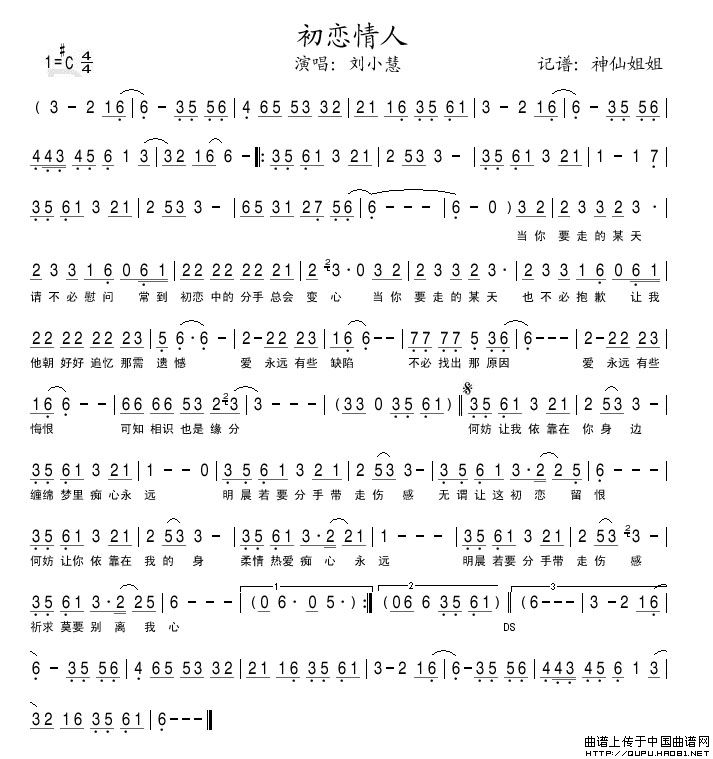 初恋情人
1=#C 4/4
演唱：刘小慧 记谱：神仙姐姐
( 3 - 2 16 | 6 - 35 56 | 4 65 53 32 | 21 16 35 61 | 3 - 2 16 | 6 - 35 56 |
443 45 6 1 3 | 32 16 6 - |: 35 61 3 21 | 2 53 3 - | 35 61 3 21 | 1 - 1 7 |
35 61 3 21 | 2 53 3 - | 65 31 27 56 | 6 - - - | 6 - 0 ) 32 | 22 3 3 2 3 · |
当你 要走的某天
2 3 3 1 6 0 61 | 22 22 22 32 | 2 23 · 0 32 | 22 3 3 2 3 · | 2 3 3 1 6 0 61 |
请不必慰问 常到 初恋 中的 分手 总会 变心 当你 要走的某天 也不必抱歉 让我
22 22 22 23 | 5 6 · 6 - | 2 - 22 23 | 16 6 - - | 77 77 5 36 | 6 - - - | 2 - 22 23 |
他朝 好好 追忆 那需 遗憾 爱 永远 有些 缺陷 不必 找出 那 原因 爱 永远 有些
16 6 - - | 66 66 53 223 | 3 - - - | (33 0 35 61) || 35 61 3 21 | 2 53 3 - |
悔恨 可知 相识 也是 缘分 何妨 让我 依 靠在 你 身 边
35 61 3 21 | 1 - - 0 | 35 61 3 21 | 2 53 3 - | 35 61 3·2 25 | 6 - - - |
缠绵 梦里 痴 心永 远 明晨 若要 分 手带 走 伤 感 无谓 让这 初 恋 留 恨
35 61 3 21 | 2 53 3 - | 35 61 3·2 21 | 1 - - - | 35 61 3 21 | 2 53 23 - |
何妨 让你 依 靠在 我 的 身 柔情 热爱 痴 心 永 远 明晨 若要 分 手带 走 伤 感
35 61 3·2 25 | 6 - - - | 1 (06· 05·) :| 2 (06 6 35 61) | 3 (6 - - - | 3 - 2 16 |
祈求 莫要 别 离 我 心 DS
6 - 35 56 | 4 65 53 32 | 21 16 35 61 | 3 - 2 16 | 6 - 35 56 | 443 45 6 1 3 |
32 16 35 61 | 6 - - - ||
曲谱上传于中国曲谱网
www.QUPU.HAO81.NET